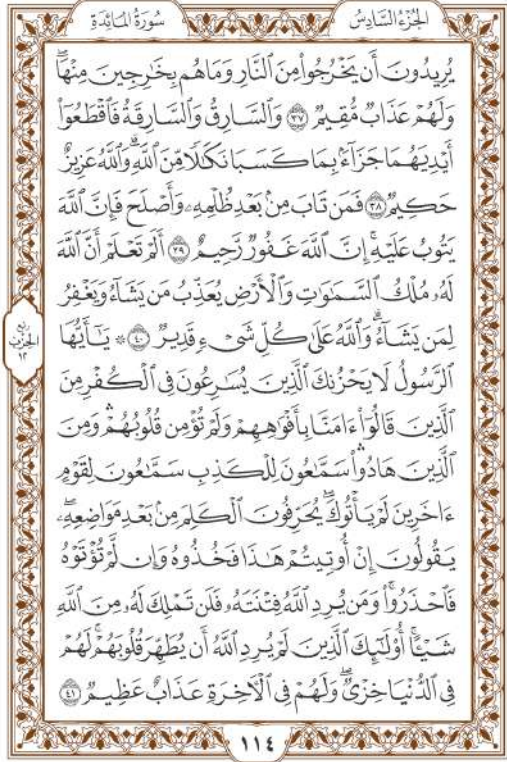 الجُزْءُ السَّادِسُ
سُورَةُ المَائِدَةِ
يُرِيدُونَ أَن يَخْرُجُوا۟ مِنَ ٱلنَّارِ وَمَا هُم بِخَٰرِجِينَ مِنْهَاۖ
وَلَهُمْ عَذَابٌ مُّقِيمٌ ٣٧ وَٱلسَّارِقُ وَٱلسَّارِقَةُ فَٱقْطَعُوٓا۟
أَيْدِيَهُمَا جَزَآءًۢ بِمَا كَسَبَا نَكَٰلًا مِّنَ ٱللَّهِۗ وَٱللَّهُ عَزِيزٌ
حَكِيمٌ ٣٨ فَمَن تَابَ مِنۢ بَعْدِ ظُلْمِهِۦ وَأَصْلَحَ فَإِنَّ ٱللَّهَ
يَتُوبُ عَلَيْهِۚ إِنَّ ٱللَّهَ غَفُورٌ رَّحِيمٌ ٣٩ أَلَمْ تَعْلَمْ أَنَّ ٱللَّهَ
لَهُۥ مُلْكُ ٱلسَّمَٰوَٰتِ وَٱلْأَرْضِ يُعَذِّبُ مَن يَشَآءُ وَيَغْفِرُ
لِمَن يَشَآءُۗ وَٱللَّهُ عَلَىٰ كُلِّ شَىْءٍ قَدِيرٌ ٤٠ ۞ يَٰٓأَيُّهَا
ٱلرَّسُولُ لَا يَحْزُنكَ ٱلَّذِينَ يُسَٰرِعُونَ فِى ٱلْكُفْرِ مِنَ
ٱلَّذِينَ قَالُوٓا۟ ءَامَنَّا بِأَفْوَٰهِهِمْ وَلَمْ تُؤْمِن قُلُوبُهُمْۛ وَمِنَ
ٱلَّذِينَ هَادُوا۟ۛ سَمَّٰعُونَ لِلْكَذِبِ سَمَّٰعُونَ لِقَوْمٍ
ءَاخَرِينَ لَمْ يَأْتُوكَۖ يُحَرِّفُونَ ٱلْكَلِمَ مِنۢ بَعْدِ مَوَاضِعِهِۦۖ
يَقُولُونَ إِنْ أُوتِيتُمْ هَٰذَا فَخُذُوهُ وَإِن لَّمْ تُؤْتَوْهُ
فَٱحْذَرُوا۟ۚ وَمَن يُرِدِ ٱللَّهُ فِتْنَتَهُۥ فَلَن تَمْلِكَ لَهُۥ مِنَ ٱللَّهِ
شَيْـًٔاۚ أُو۟لَٰٓئِكَ ٱلَّذِينَ لَمْ يُرِدِ ٱللَّهُ أَن يُطَهِّرَ قُلُوبَهُمْۚ لَهُمْ
فِى ٱلدُّنْيَا خِزْىٌۖ وَلَهُمْ فِى ٱلْءَاخِرَةِ عَذَابٌ عَظِيمٌ ٤١
رُبْع
الحِزْب
١٢
١١٤